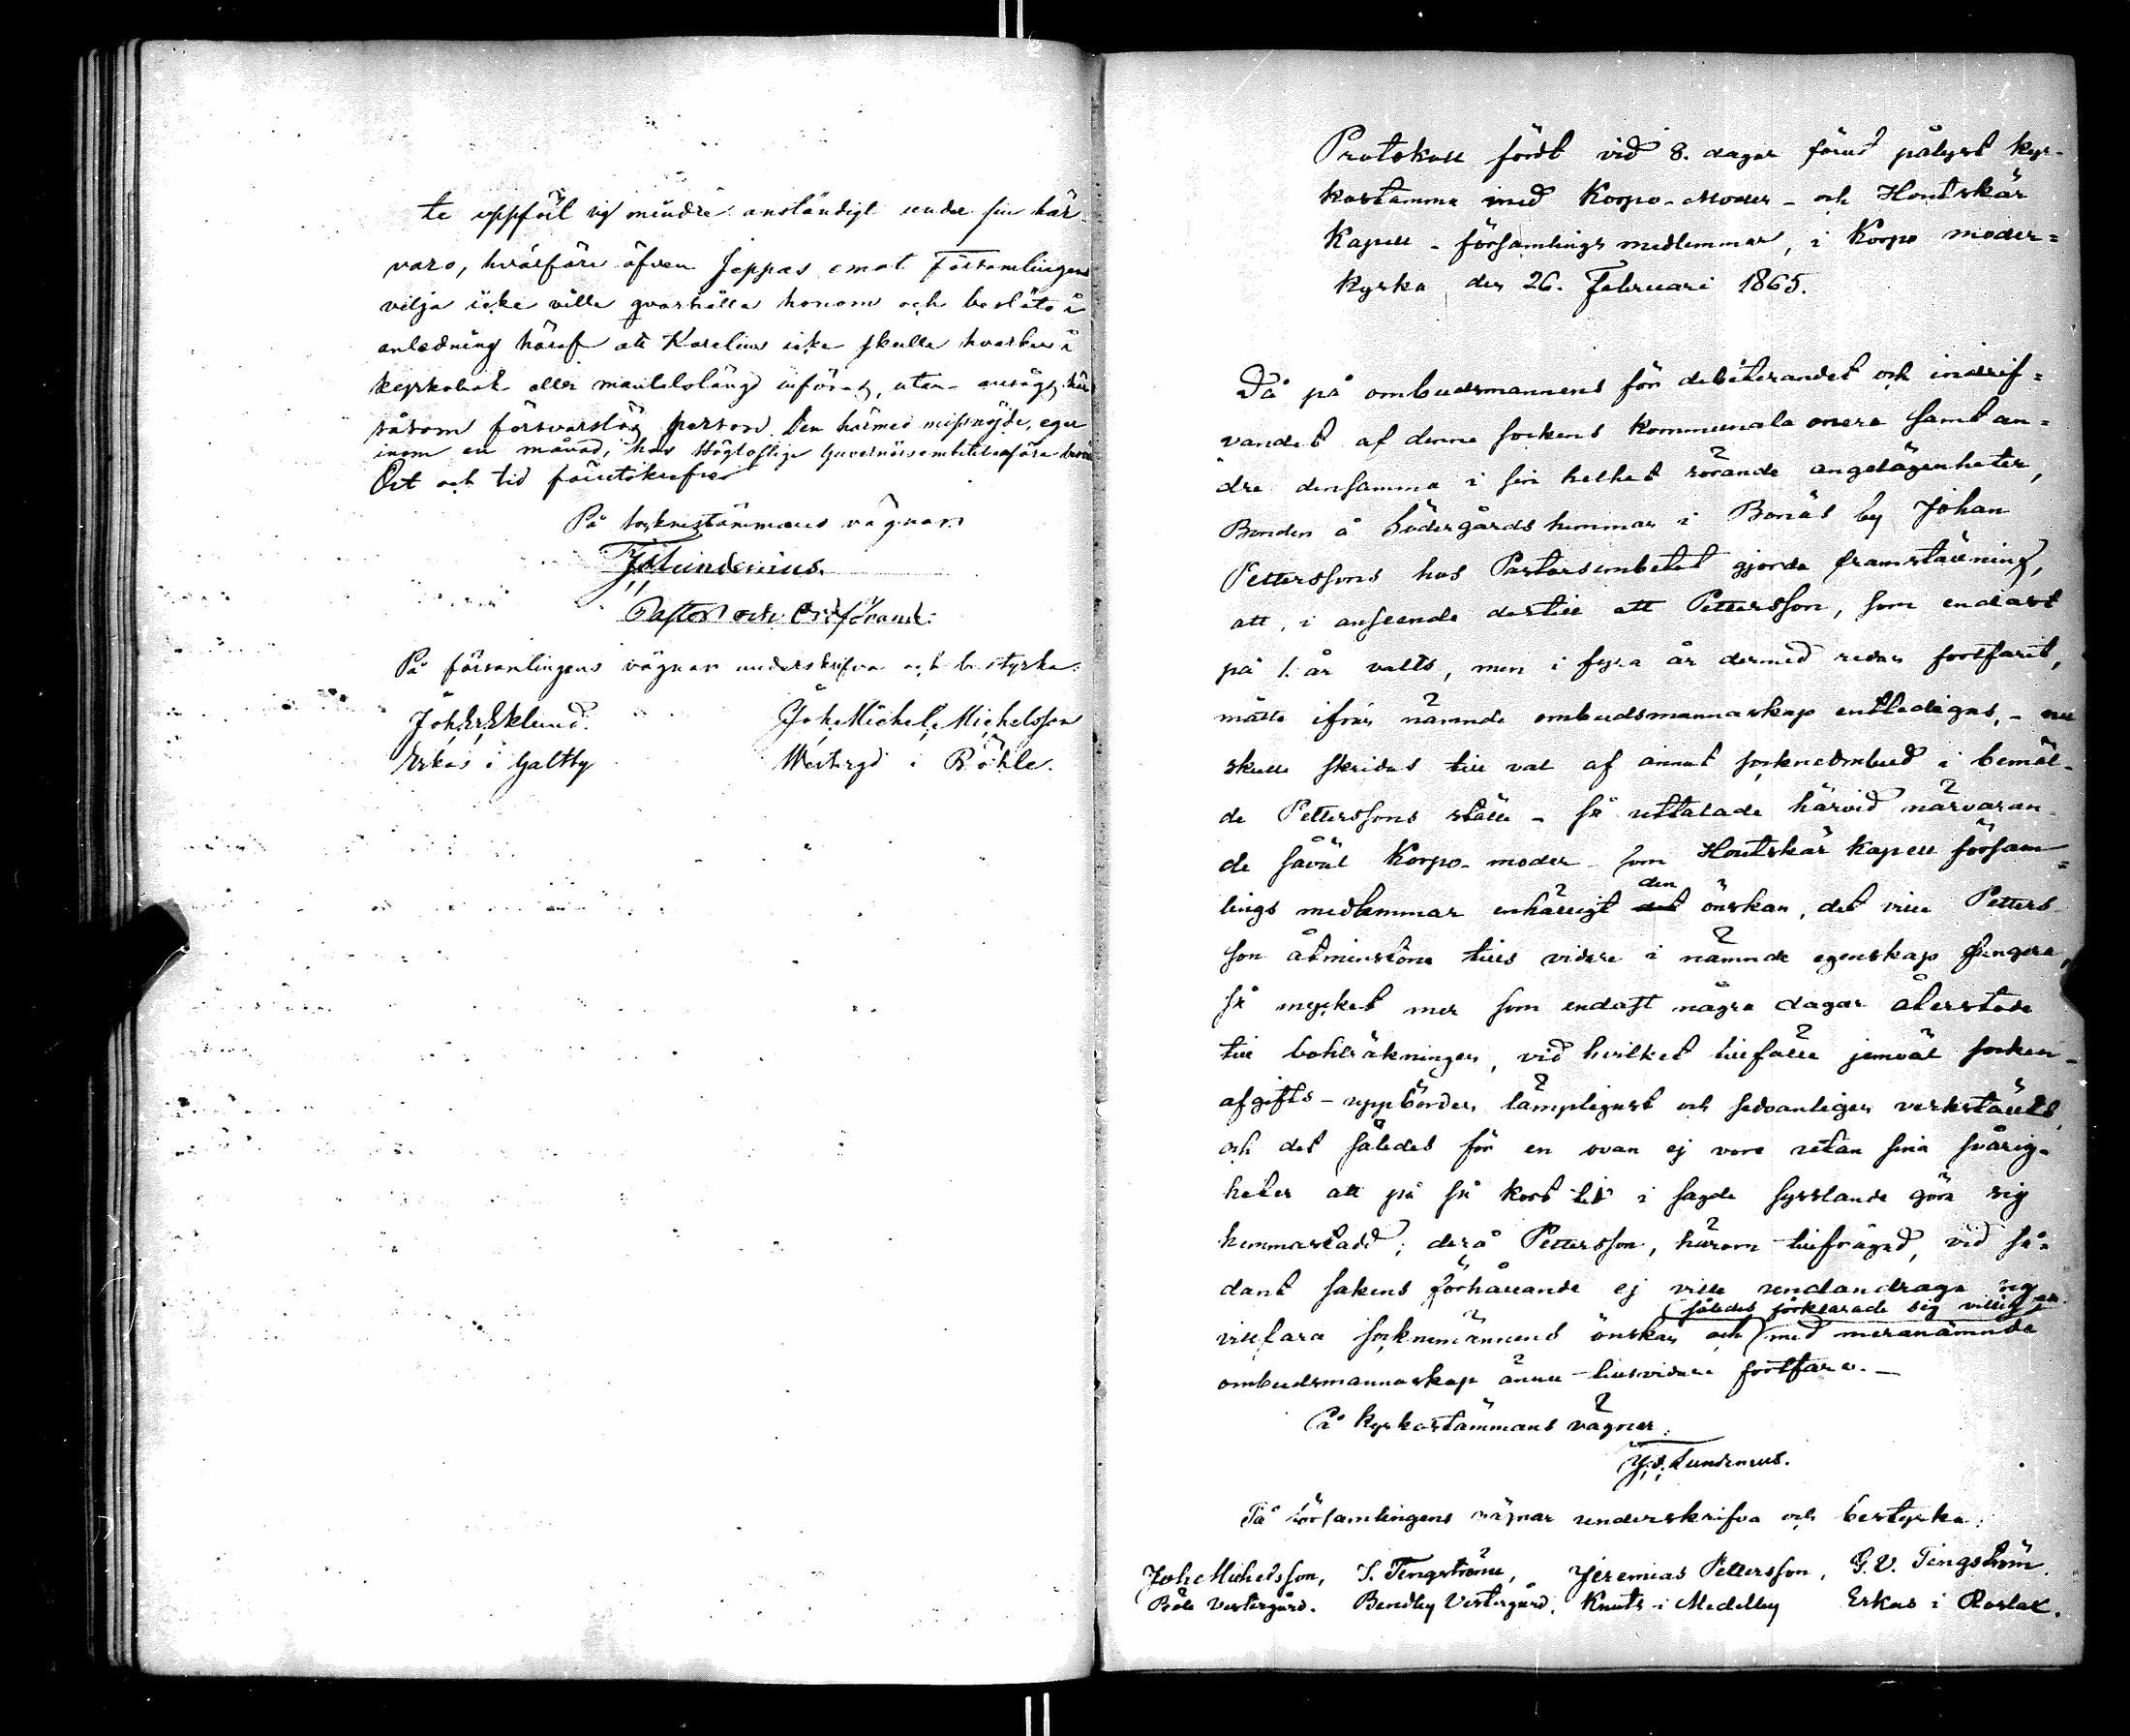 te uppfört sig mindre anständigt under sin här-
varo, hvarföre äfven Jeppas emot Församlingens
vilja icke ville qvarhålla honom och beslöts i
anledning häraf att Karelius icke skulle hvarken i
kyrkobok eller mantalslängd införas, utan anses här
såsom försvarslös person. Den härmed missnöjde, eger
inom en månad, hos Höglofliga Guvernörsembetet anföra besvär
Ort och tid förutskrefne
På socknestämmans vägnar
Lundenius.
Pastor och Ordförande.
På församlingens vägnar underskrifva och bestyrka:
Joh. Er. Eklund. Joh. Michel. Michelsson
Erkas i Galtby Westergd i Böhle.
Protokoll fördt vid 8. dagar förut pålyst kyr-
kostämma med Korpo-Moder- och Houtskär
Kapell-församlings medlemmar, i Korpo moder=
kyrka den 26. Februari 1865.
Då på ombudsmannens för debiterandet och indrif=
vandet af denna sockens kommunala onera samt an=
dra densamma i sin helhet rörande angelägenheter,
Bonden å Södergårds hemman i Bonäs by Johan
Petterssons hos Pastorsembetet gjorda framställning,
att, i anseende dertill att Pettersson, som endast
på 1. år valts, men i fyra år dermed redan fortfarit,
måtte ifrån nämnde ombudsmannaskap entledigas, - nu
skulle skridas till val af annat sockneombud i bemäl-
de Petterssons ställe - så uttalade härvid närvaran-
de såväl Korpo-moder som Houtskär kapell försam=
lings medlemmar enhälligt den önskan, det ville Petters-
son åtminstone tills vidare i nämnde egenskap fungera,
så mycket mer som endast några dagar återstode
till bohlräkningen, vid hvilket tillfälle jemväl socken-
afgifts-uppbörden lämpligast och sedvanligen verkställts,
och det således för en ovan ej vore utan sina svårig-
heter att på så kort tid i sagde sysslande göra sig
hemmastadd; derå Pettersson, härom tillfrågad, vid så-
dant sakens förhållande ej ville undandraga sig
villfara socknemännens önskan och (således förklarade sig villig att) med meranämnde
ombudsmannaskap ännu tillsvidare fortfara.-
På kyrkostämmans vägnar:
Lundenius.
På församlingens vägnar underskrifva och bestyrka:
Joh. Michelsson, S. Tengström, Jeremias Pettersson, G. V. Tengström.
Böle Vestergård. Bendby Vestergård. Knuts i Medelby Erkas i Roslax.